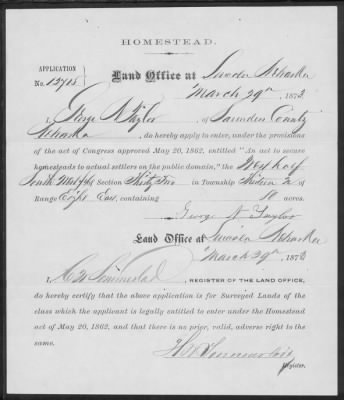 HOMESTEAD.
APPLICATION
No. 12715
Land Office at Lincoln Nebraska
March 29th, 1872
I, George N Taylor, of Saunders County
Nebraska, do hereby apply to enter, under the provisions
of the act of Congress approved May 20, 1862, entitled "An act to secure
homesteads to actual settlers on the public domain," the West half
South West 1/4 of Section Thirty Two in Township Thirteen N of
Range Eight East, containing 80 acres.
George N Taylor
Land Office at Lincoln Nebraska
March 29th 1872
I, REGISTER OF THE LAND OFFICE,
do hereby certify that the above application is for Surveyed Lands of the
class which the applicant is legally entitled to enter under the Homestead
act of May 20, 1862, and that there is no prior, valid, adverse right to the
same.
Register.